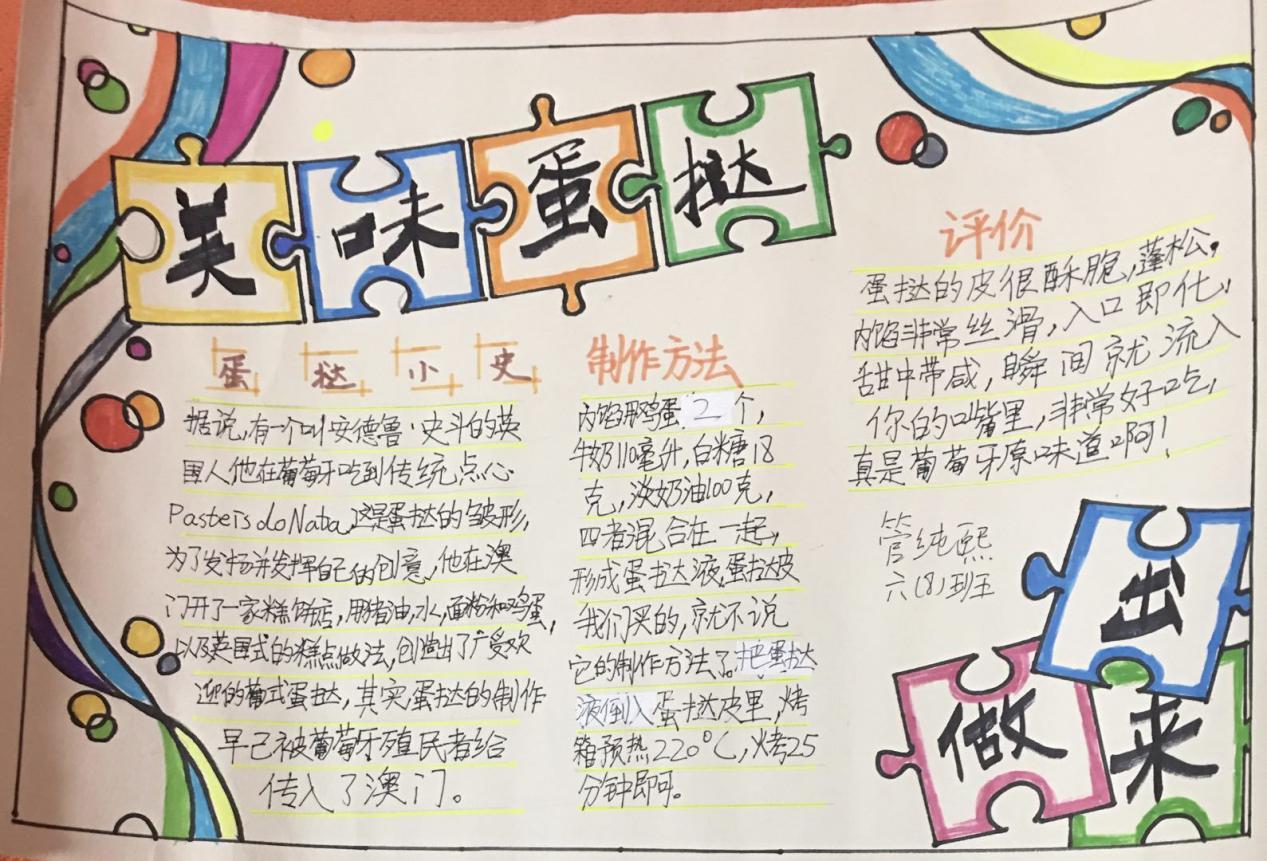 美味蛋挞
蛋挞小史
据说,有一个叫安德鲁·史斗的英
国人他在葡萄牙吃到传统点心
Pasteis do Nata,这是蛋挞的雏形,
为了发扬并发挥自己的创意,他在澳
门开了一家糕饼店,用猪油,水,面粉和鸡蛋,
以及英国式的糕点做法,创造出了广受欢
迎的葡式蛋挞,其实蛋挞的制作
早已被葡萄牙殖民者给
传入了澳门。
制作方法
内馅用鸡蛋2个,
牛奶110毫升,白糖18
克,淡奶油100克,
四者混合在一起,
形成蛋挞液,蛋挞皮
我们买的,就不说
它的制作方法了。把蛋挞
液倒入蛋挞皮里,烤
箱预热220°C,烤25
分钟即可。
评价
蛋挞的皮很酥脆,蓬松,
内馅非常丝滑,入口即化,
甜中带咸,瞬间就流入
你的嘴里,非常好吃,
真是葡萄牙原味道啊!
管纯熙
六(8)班
做出来